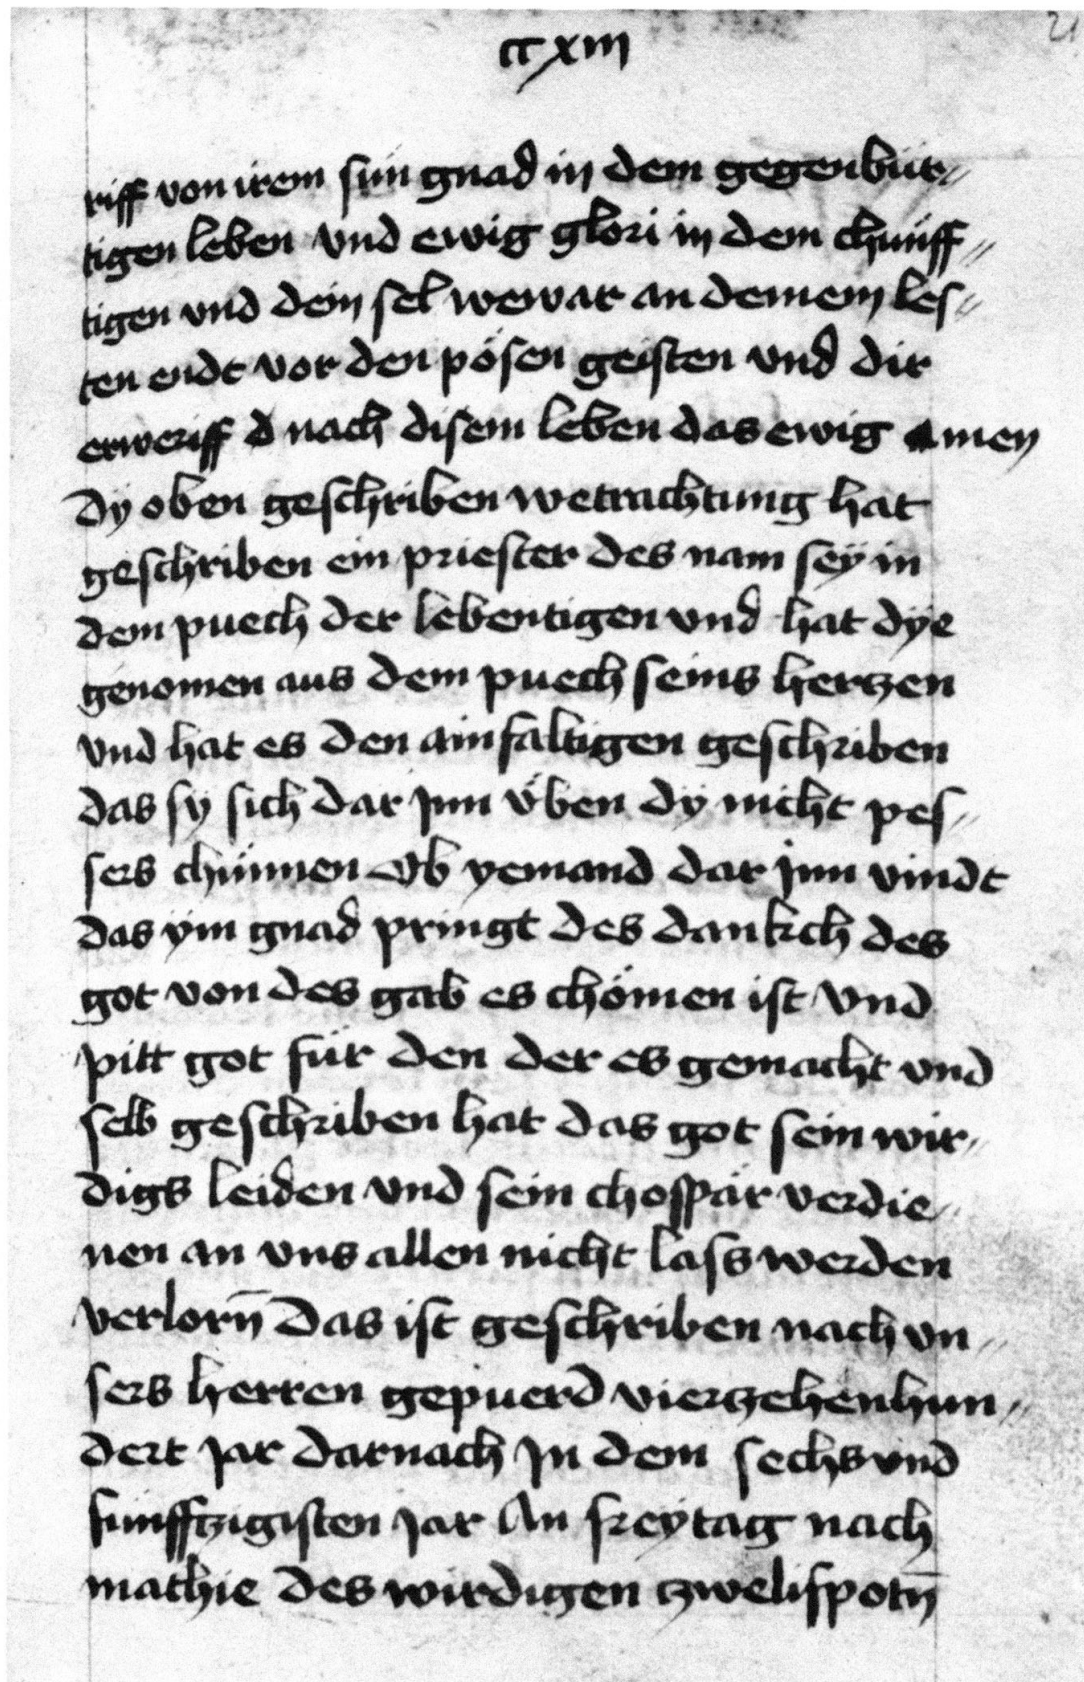 ccxiii
riff von irem sun gnad in dem gegenbür-
tigen leben vnd ewig glori in dem chunff-
tigen vnd dein sel wewar an deinem les-
ten endt vor den pösen geisten vnd dir
erweriff d nach disem leben das ewig amen
Dy oben geschriben wetrachtung hat
geschriben ein priester des nam sey in
dem puech der lebentigen vnd hat dye
genomen aus dem puech seins hertzen
vnd hat es den ainfaltigen geschriben
das sy sich dar jnn vben dy nicht pes-
sers chünnen Ob yemand dar jnn vindt
das ym gnad pringt des dankch des
got von des gab es chömen ist Vnd
pitt got für den der es gemacht vnd
selb geschriben hat das got sein wir-
digs leiden vnd sein chospär verdie-
nen an vns allen nicht lass werden
verlorn̄ Das ist geschriben nach vn-
sers herren gepuerd vierzehenhun-
dert jar darnach Jn dem sechs vnd
funffzigisten jar An freytag nach
mathie des wirdigen zwelifpotn̄